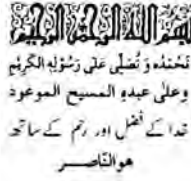 بسم اللہ الرحمن الرحیم
نحمدہ و نصلی علی رسولہ الکریم
وعلی عبدہ المسیح الموعود
خدا کے فضل اور رحم کے ساتھ
هو الناصر